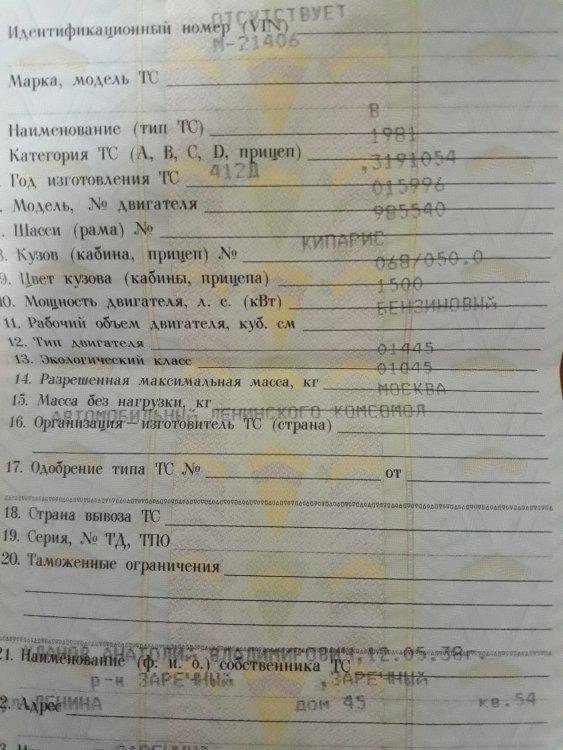 ОТСУТСТВУЕТ
Идентификационный номер (VIN)
М-21406
Марка, модель ТС
В
Наименование (тип ТС)
1981
Категория ТС (А, В, С, D, прицеп)
,3191054
412Д
Год изготовления ТС
015996
Модель, № двигателя
985540
Шасси (рама) №
КИПАРИС
8. Кузов (кабина, прицеп) №
068/050.0
9. Цвет кузова (кабины, прицепа)
1500
10. Мощность двигателя, л. с. (кВт)
БЕНЗИНОВЫЙ
11. Рабочий объем двигателя, куб. см
12. Тип двигателя
01445
13. Экологический класс
01045
14. Разрешенная максимальная масса, кг
МОСКВА
15. Масса без нагрузки, кг
АВТОМОБИЛЬНЫЙ ЛЕНИНСКОГО КОМСОМОЛ
16. Организация—изготовитель ТС (страна)
17. Одобрение типа ТС № от
18. Страна вывоза ТС
19. Серия, № ТД, ТПО
20. Таможенные ограничения
АНАТОЛИЙ ВЛОДИМИРОВИЧ,12.05.38г.
21. Наименование (ф. и. о.) собственника ТС
р-н ЗАРЕЧНЫЙ ,ЗАРЕЧНЫЙ
ЛЕНИНА дом 45 кв.54
2. Адрес